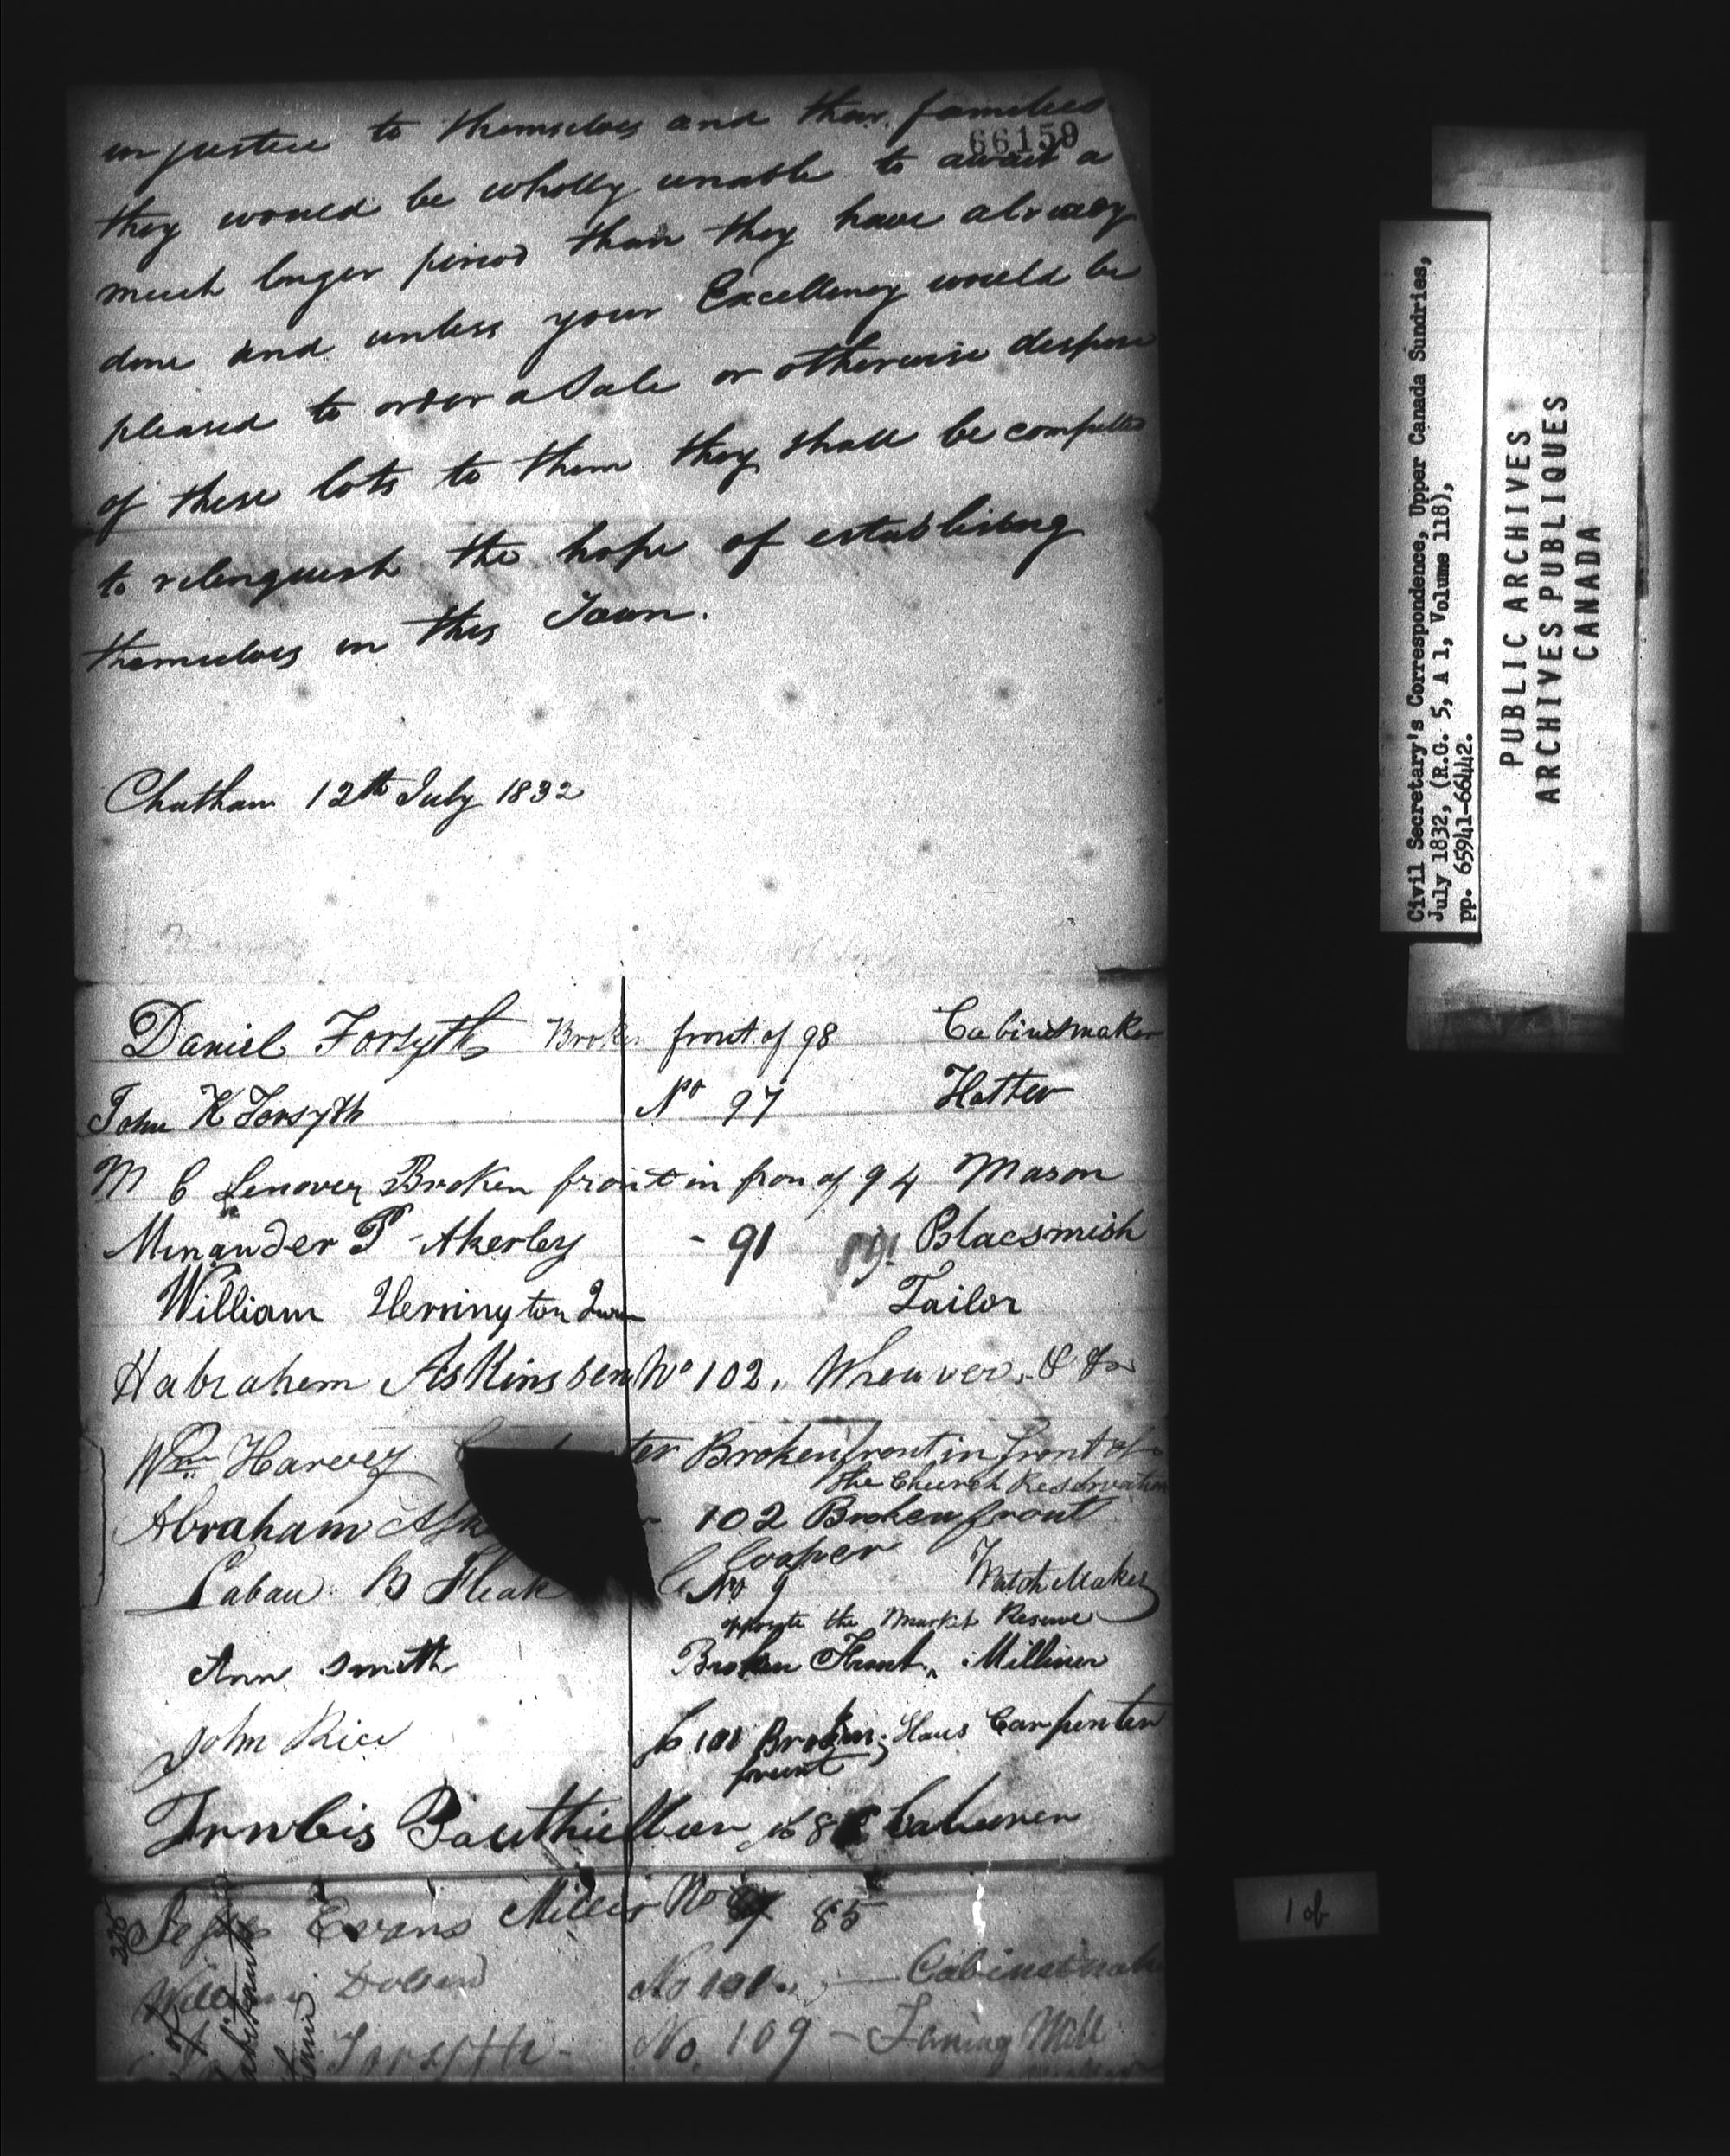 in justice to themselves and their families
66159
they would be wholly unable to await a
much longer period than they have already
done and unless your Excellency would be
pleased to order a Sale or otherwise dispose
of these lots to them they shall be compelled
to relinquish the hope of establishing
themselves in this Town.
Chatham 12th July 1832
Daniel Forsyth Broken front of 98 Cabinetmaker
John K Forsyth No 97 Hatter
M C Lenover Broken front in fron of 94 Mason
Minander P Akerley - 91 Blacsmish
William Herrington Tailor
Habraham Askins No 102,
Wm Harvey Broken front in front of
the Church Reservation
Abraham 102 Broken front
Cooper
Laban B No 9 Watch Maker
opposite the Market Reserve
Ann Smith Broken Front, Milliner
John Rice 101 Broken Carpenter
front
Evans Miller No 85
William Dolsen No 101 Cabinetmak
Forsyth - No. 109 - Faning Mill
Civil Secretary's Correspondence, Upper Canada Sundries,
July 1832, (R.G. 5, A 1, Volume 118),
pp. 65941-66442.
PUBLIC ARCHIVES
ARCHIVES PUBLIQUES
CANADA